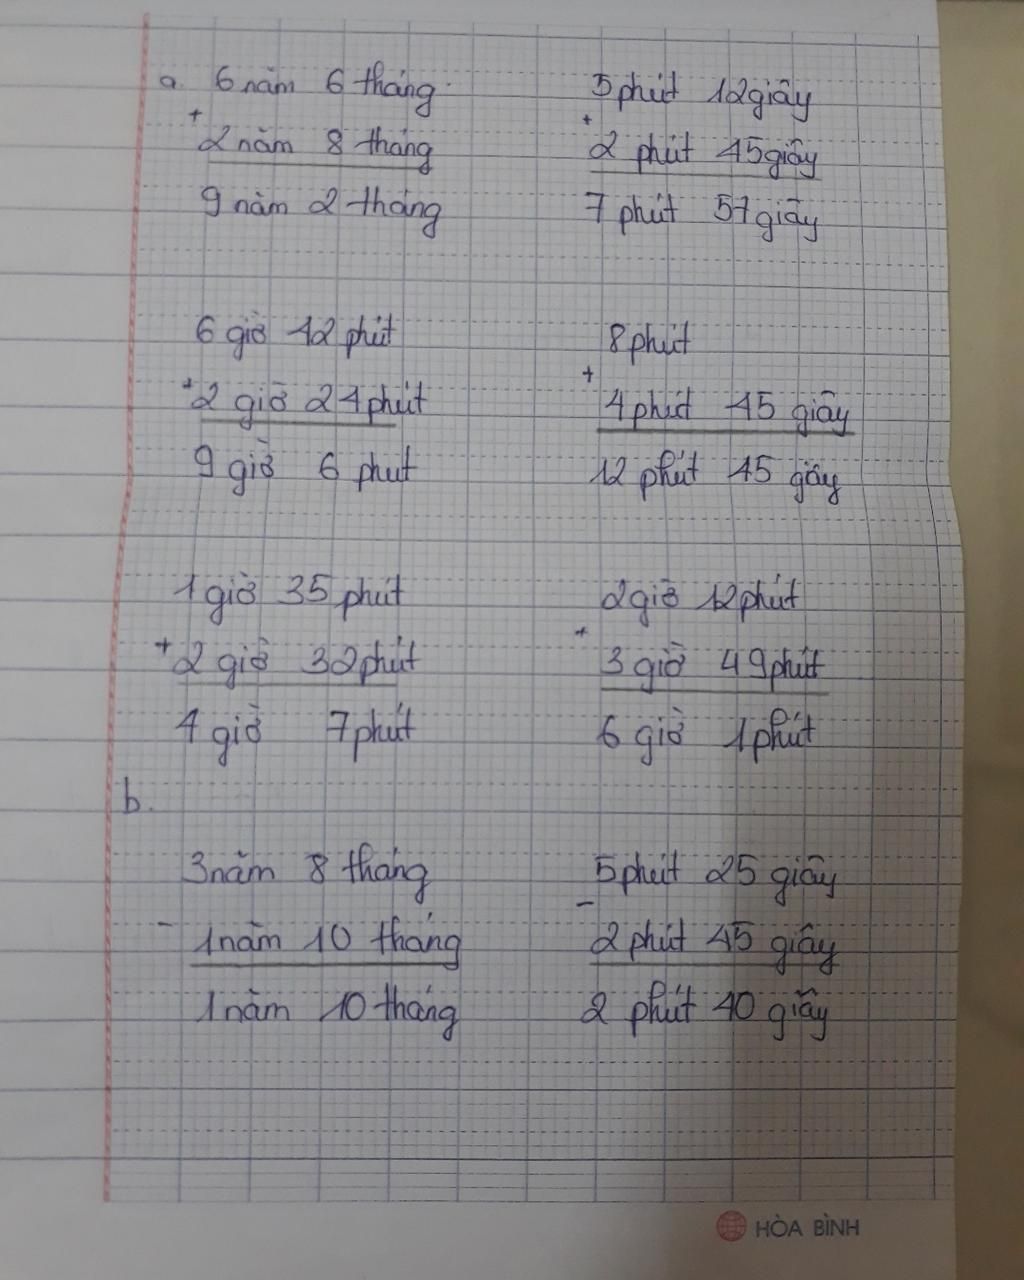 a. 6 năm 6 tháng
+
2 năm 8 tháng
9 năm 2 tháng
5 phút 12 giây
+
2 phút 45 giây
7 phút 57 giây
6 giờ 42 phút
+
2 giờ 24 phút
9 giờ 6 phut
8 phút
+
4 phút 45 giây
12 phút 45 gây
1 giờ 35 phút
+
2 giờ 32 phút
4 giờ 7 phút
2 giờ 12 phút
+
3 giờ 49 phút
6 giờ 1 phút
b.
3 năm 8 tháng
-
1 năm 10 tháng
1 năm 10 tháng
5 phút 25 giây
-
2 phút 45 giây
2 phút 40 giây
HÒA BÌNH